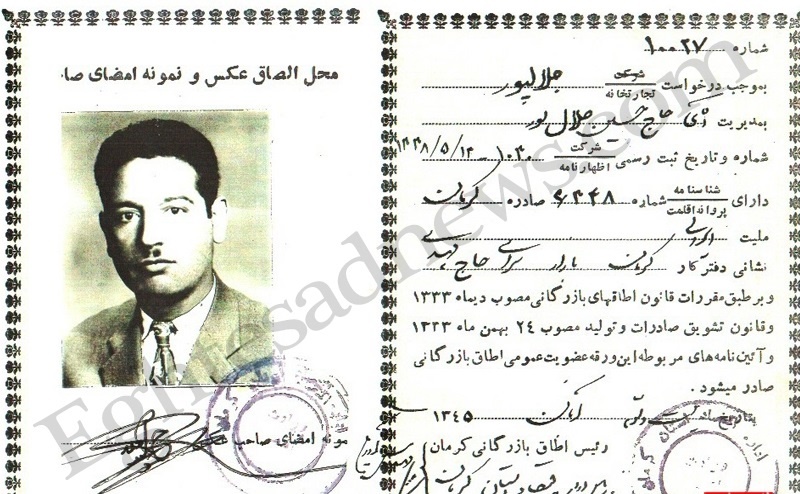 محل الصاق عکس و نمونه امضای صا
نمونه امضای صاحب
شماره ۱۰۰۲۷
بموجب درخواست شرکت تجارتخانه جلالپور
بمدیریت آقای حاج حسین جلال پور
شماره و تاریخ ثبت رسمی شرکت اظهارنامه ۱۰۳۰ - ۱۳۳۸/۵/۱۲
دارای شناسنامه پروانه اقامت شماره ۶۳۴۸ صادره کرمان
ملیت ایرانی
نشانی دفتر کار کرمان بازار سرای حاج مهدی
و بر طبق مقررات قانون اطاقهای بازرگانی مصوب دیماه ۱۳۳۳
و قانون تشویق صادرات و تولید مصوب ۲۴ بهمن ماه ۱۳۳۳
و آئین نامه های مربوطه این ورقه عضویت عمومی اطاق بازرگانی
صادر میشود.
بتاریخ ماه آبان ۱۳۴۵
رئیس اطاق بازرگانی کرمان
Eghtesadnews.com